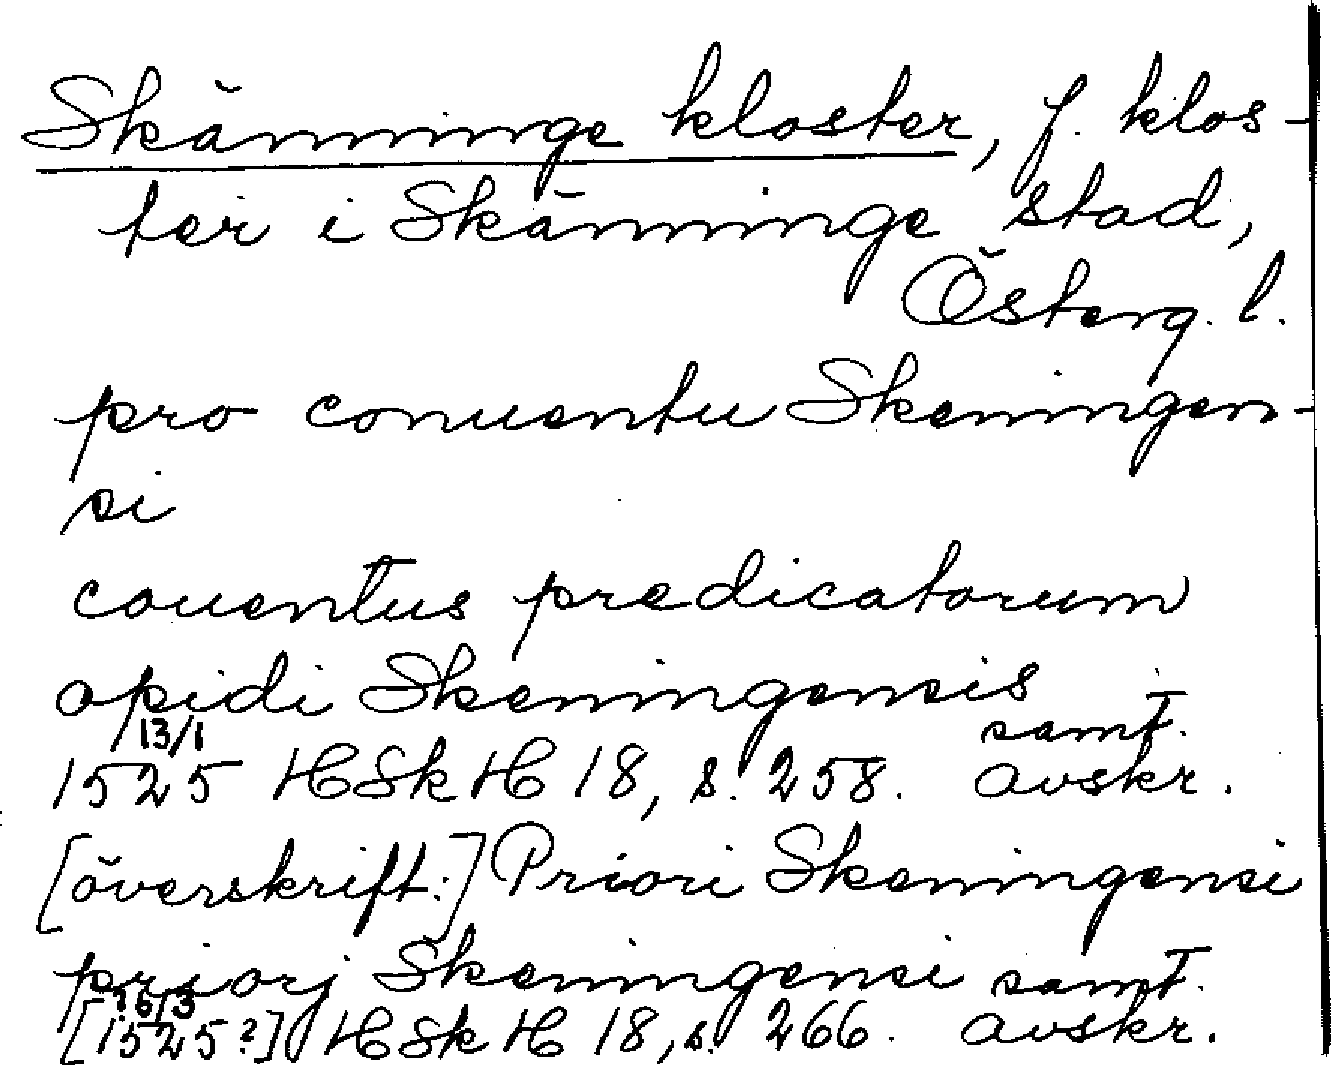 Skänninge kloster, f. klos-
ter i Skänninge stad,
Österg. l.
pro conuentu Skeningen-
si
couentus predicatorum
opidi Skeningensis
13/1 samt.
1525 HSkH 18, s. 258. avskr.
[överskrift:] Priori Skeningensi
priorj Skeningensi samt.
16/3
[1525?] HSkH 18, s. 266. avskr.